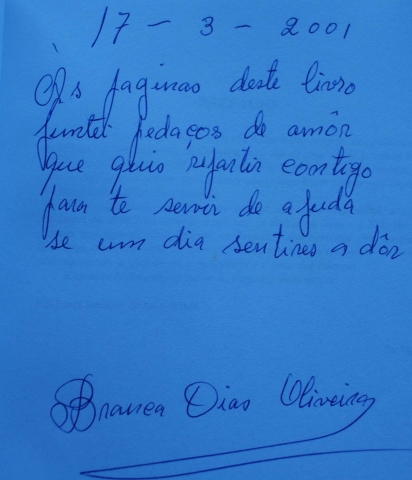 17 - 3 - 2001
Às paginas deste livro
juntei pedaços de amôr
que quis repartir contigo
para te servir de ajuda
se um dia sentires a dôr
Branca Dias Oliveira